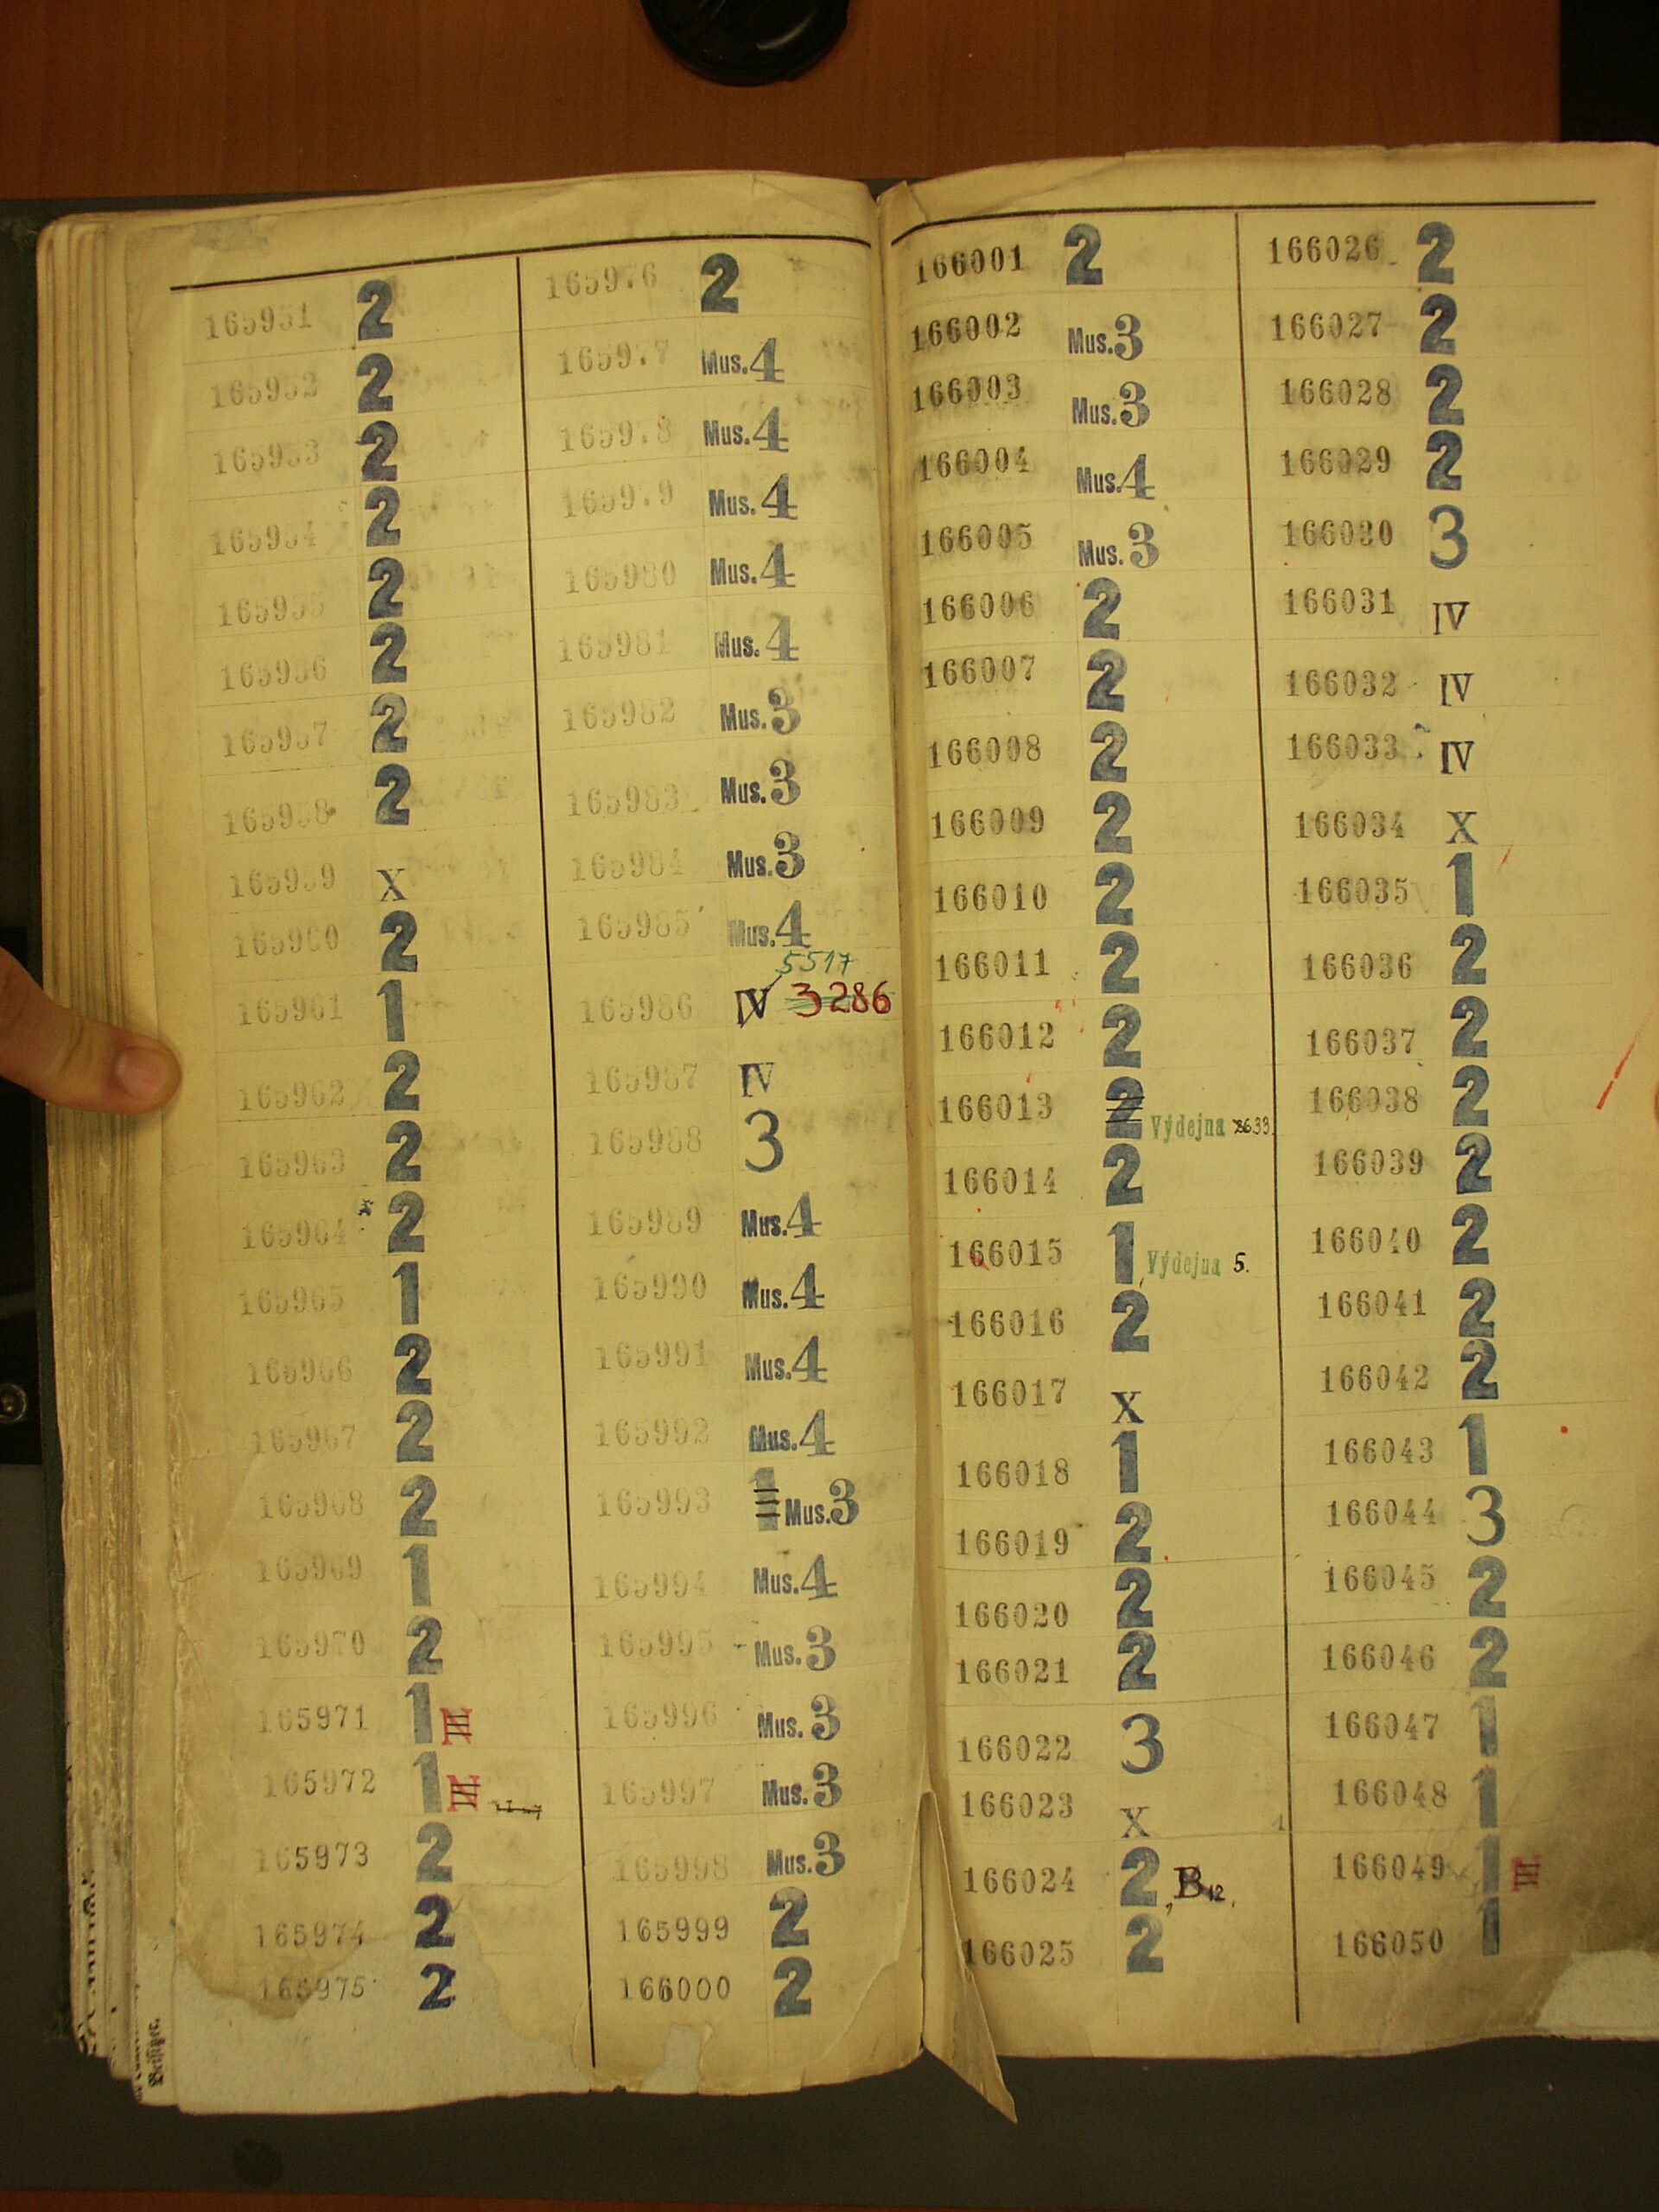 165951 2
165952 2
165953 2
165954 2
165955 2
165956 2
165957 2
165958 2
165959 X
165960 2
165961 1
165962 2
165963 2
165964 2
165965 1
165966 2
165967 2
165968 2
165969 1
165970 2
165971 1
165972 1
165973 2
165974 2
165975 2
165976 2
165977 Mus. 4
165978 Mus. 4
165979 Mus. 4
165980 Mus. 4
165981 Mus. 4
165982 Mus. 3
165983 Mus. 3
165984 Mus. 3
165985 Mus. 4
5517
165986 IV 3286
165987 IV
165988 3
165989 Mus. 4
165990 Mus. 4
165991 Mus. 4
165992 Mus. 4
165993 1 Mus. 3
165994 Mus. 4
165995 Mus. 3
165996 Mus. 3
165997 Mus. 3
165998 Mus. 3
165999 2
166000 2
166001 2
166002 Mus. 3
166003 Mus. 3
166004 Mus. 4
166005 Mus. 3
166006 2
166007 2
166008 2
166009 2
166010 2
166011 2
166012 2
166013 2 Výdejna
166014 2
166015 1, Výdejna 5.
166016 2
166017 X
166018 1
166019 2
166020 2
166021 2
166022 3
166023 X
166024 2, B12,
166025 2
166026 2
166027 2
166028 2
166029 2
166030 3
166031 IV
166032 IV
166033 IV
166034 X
166035 1
166036 2
166037 2
166038 2
166039 2
166040 2
166041 2
166042 2
166043 1
166044 3
166045 2
166046 2
166047 1
166048 1
166049 1
166050 1
Beisitzer.